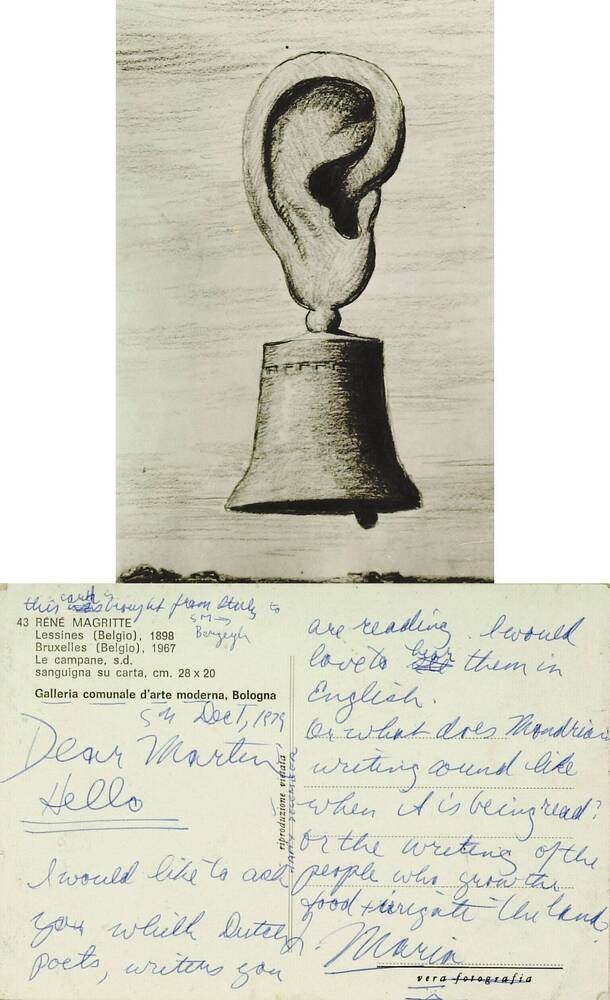 this card is brought from Italy to
43 RÉNÉ MAGRITTE
Lessines (Belgio), 1898
Bruxelles (Belgio), 1967
Le campane, s.d.
sanguigna su carta, cm. 28 x 20
Galleria comunale d'arte moderna, Bologna
Dect, 1979
Dear Martin
Hello
I would like to ask
you which Dutch
Poets, writers you
riproduzione vietata
are reading. I would
love to hear them in
English.
Or what does Mondrian
writing sound like
when it is being read?
Or the writing of the
people who grow the
food + irrigate the land?
Maria
vera fotografia